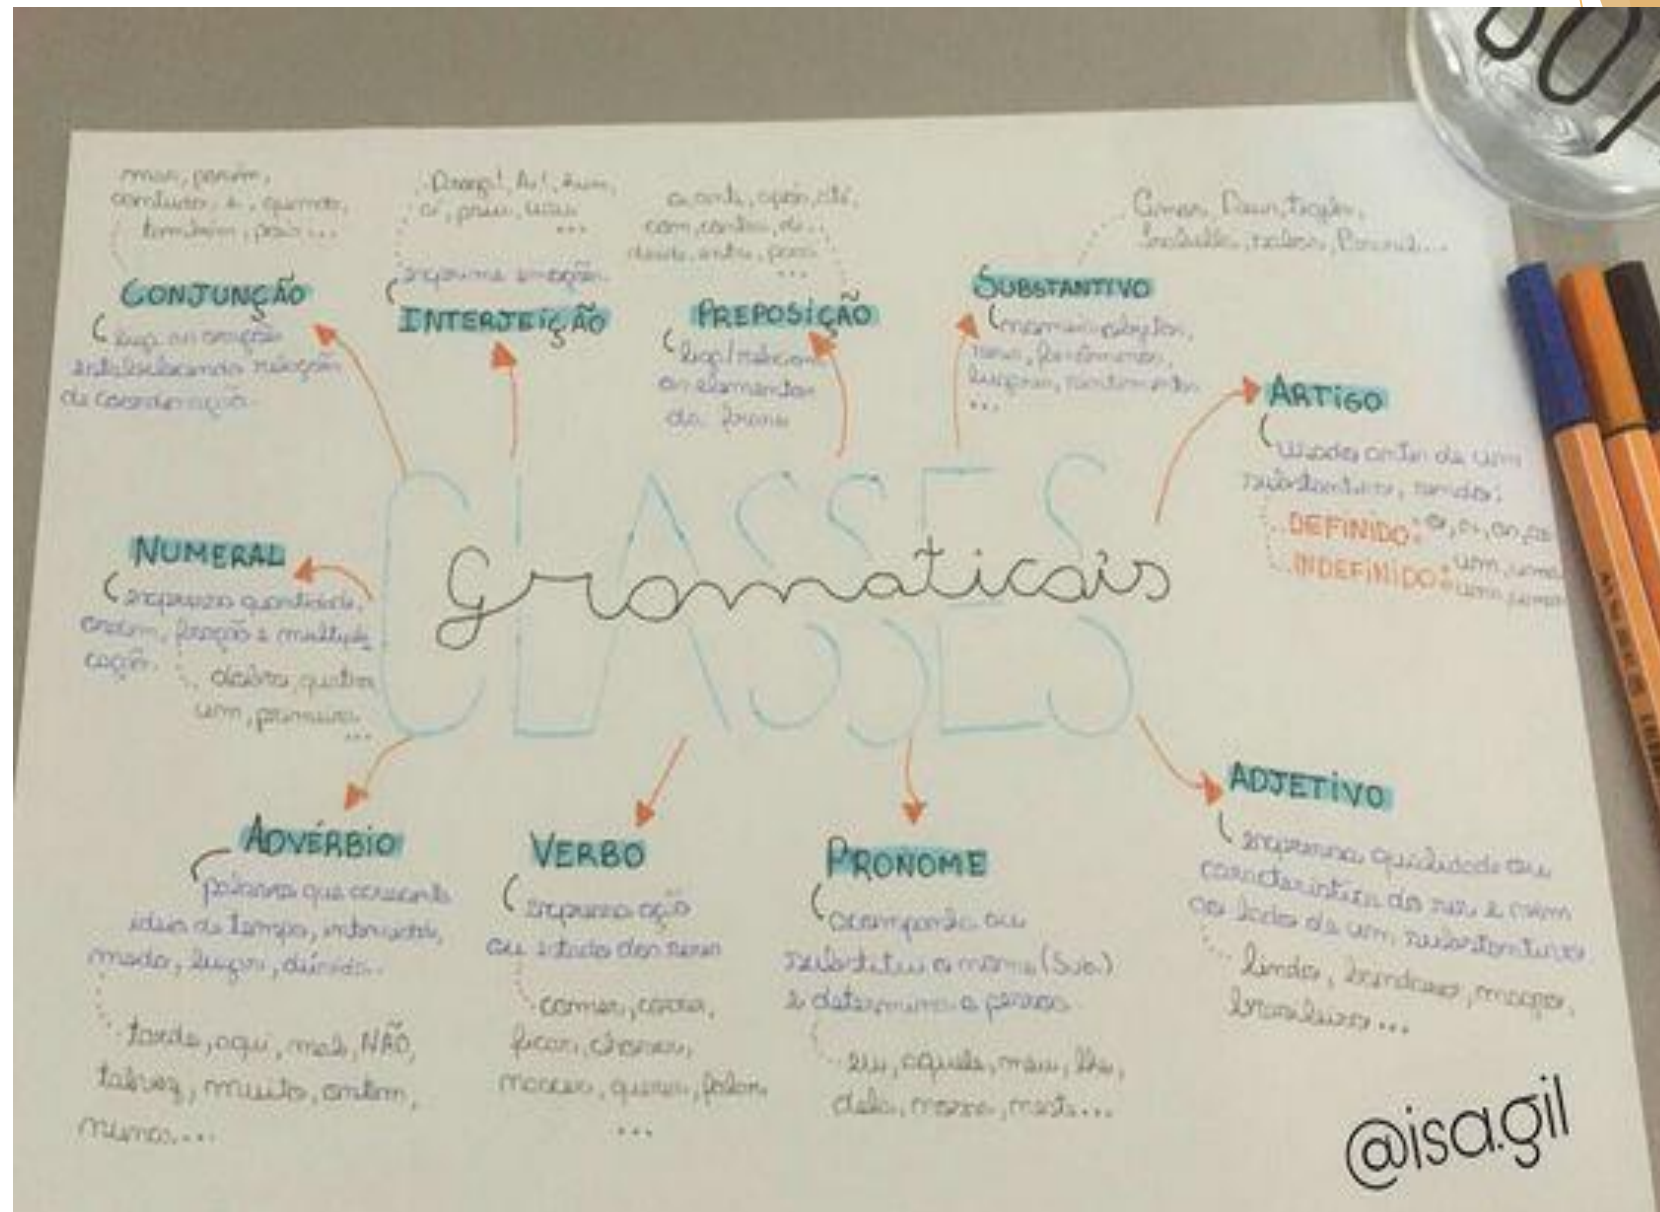 mas, porém,
contudo, e, quando,
também, pois...
CONJUNÇÃO
liga as orações
estabelecendo relação
de coordenação.
ai, psiu, uau
...
exprime emoção.
INTERJEIÇÃO
a, ante, após, até,
com, contra, de...
desde, entre, para
...
PREPOSIÇÃO
liga/relaciona
os elementos
da frase
Amor, Deus,
Isabella, Paraná...
SUBSTANTIVO
nomeia objetos,
seres, fenômenos,
lugares, sentimentos
...
ARTIGO
usado antes de um
substantivo, sendo:
DEFINIDO: o, a, os, as
INDEFINIDO: um, uma
uns, umas
CLASSES
gramaticais
NUMERAL
expressa quantidade,
ordem, fração e multipli
cação.
dobro, quatro
um, primeiro
...
ADVÉRBIO
palavra que acrescenta
ideia de tempo, intensidade,
modo, lugar, dúvida.
tarde, aqui, mal, NÃO,
talvez, muito, ontem,
nunca...
VERBO
expressa ação
ou estado dos seres
comer, correr,
ficar, chover,
nascer, querer, falar
...
PRONOME
acompanha ou
substitui o nome (Sub.)
e determina a pessoa.
eu, aquele, meu, lhe,
dela, nossa, neste...
ADJETIVO
expressa qualidade ou
característica do ser e vem
ao lado de um substantivo
lindo, bondoso, magro,
brasileiro...
@isa.gil